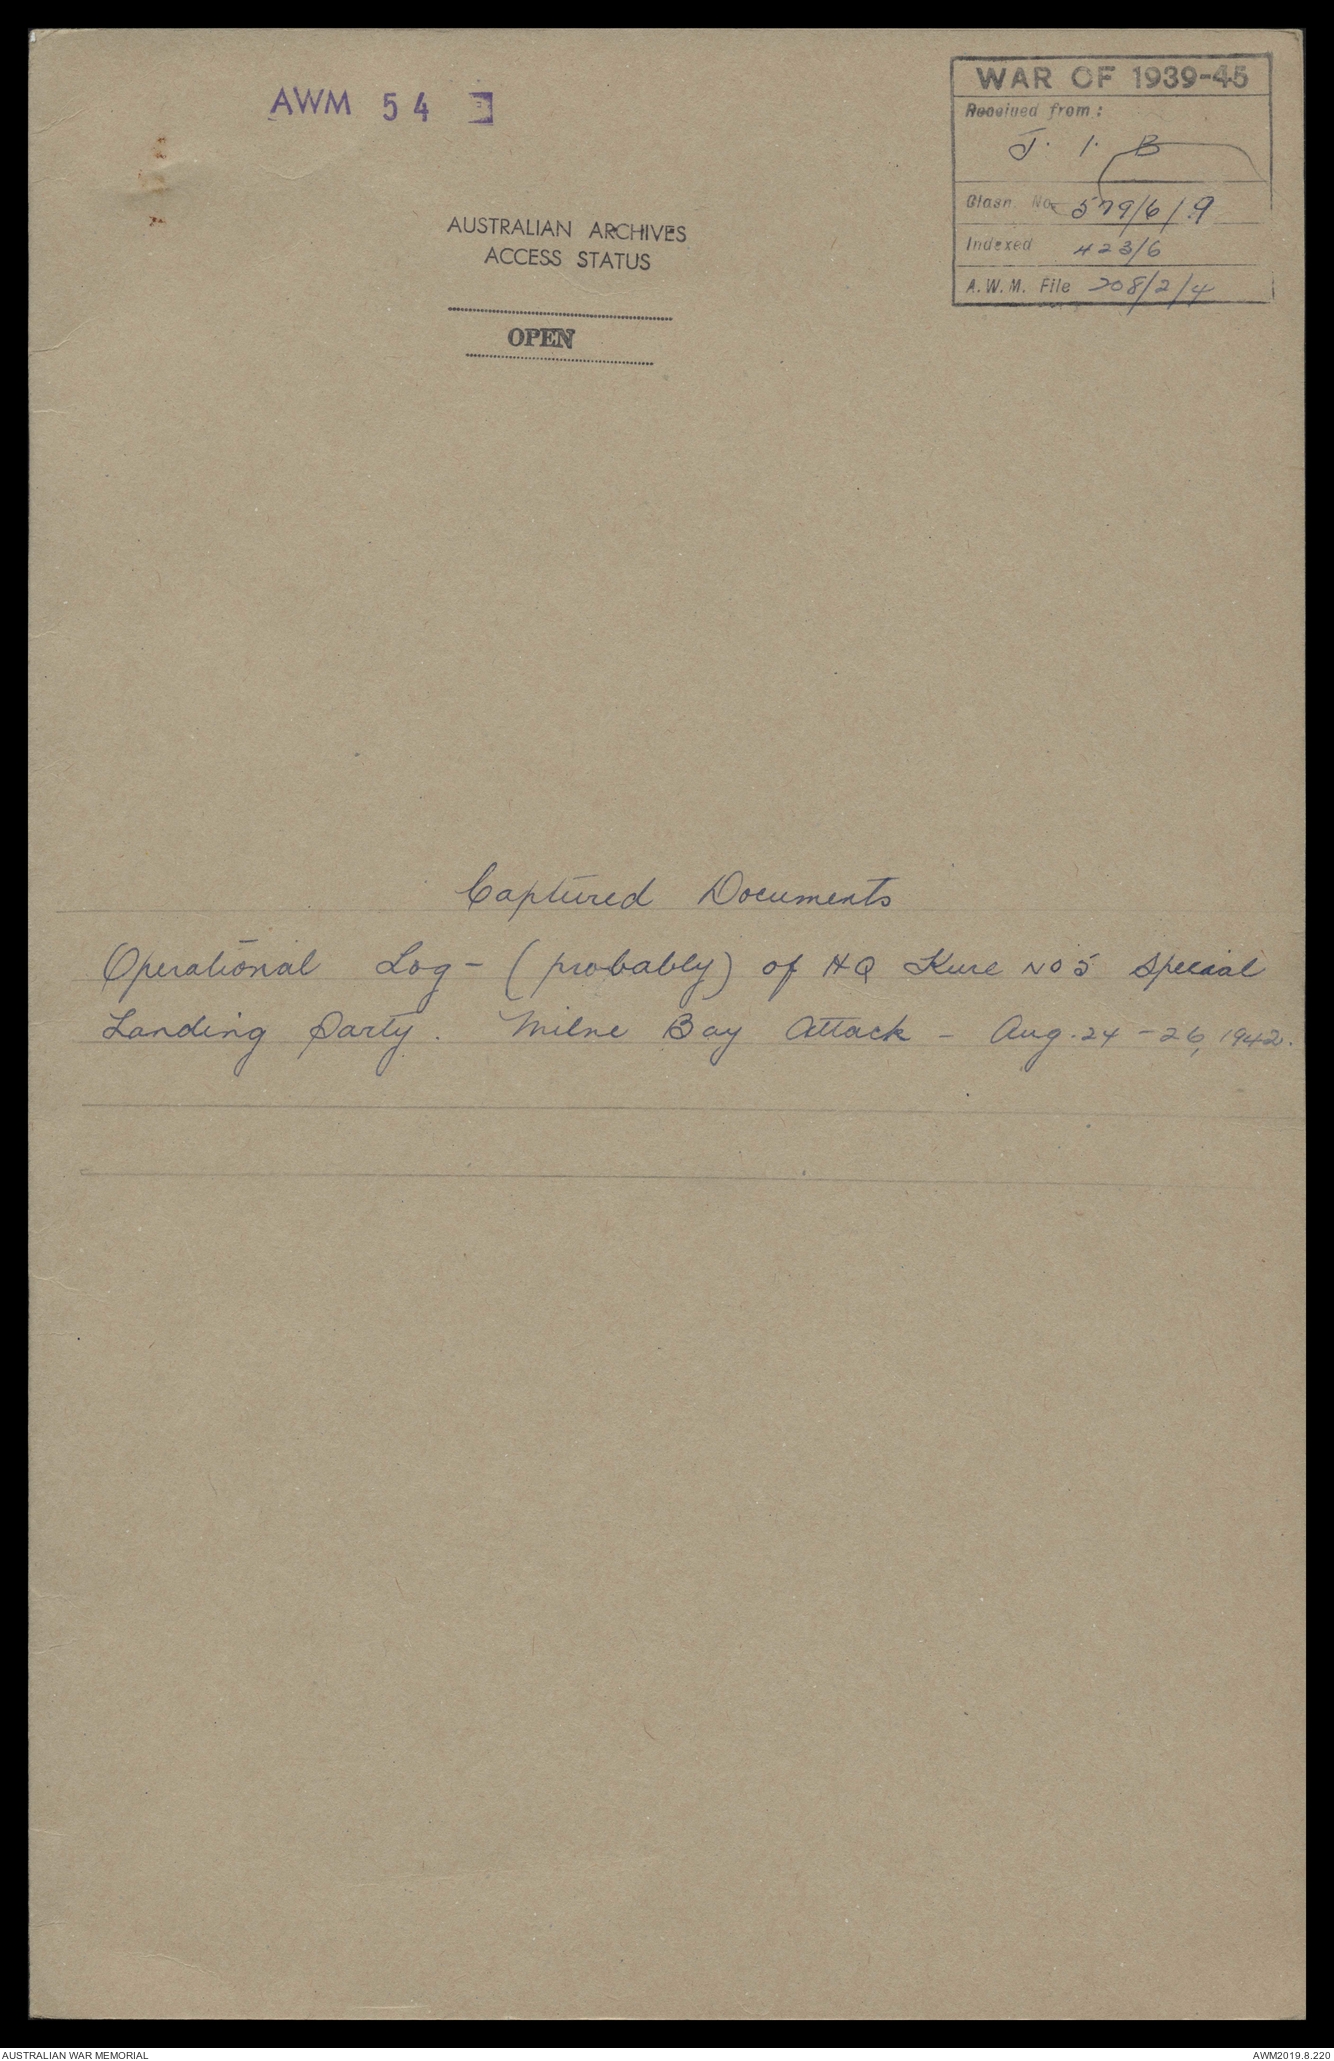 AWM 54
WAR OF 1939-45
Received from:
J. I. B
Clasn. No. 579/6/9
Indexed 423/6
A.W.M. File 208/2/4
AUSTRALIAN ARCHIVES
ACCESS STATUS
OPEN
Captured Documents
Operational Log - (probably) of HQ Kure No 5 Special
Landing Party. Milne Bay Attack - Aug. 24 - 26, 1942.
AUSTRALIAN WAR MEMORIAL
AWM2019.8.220